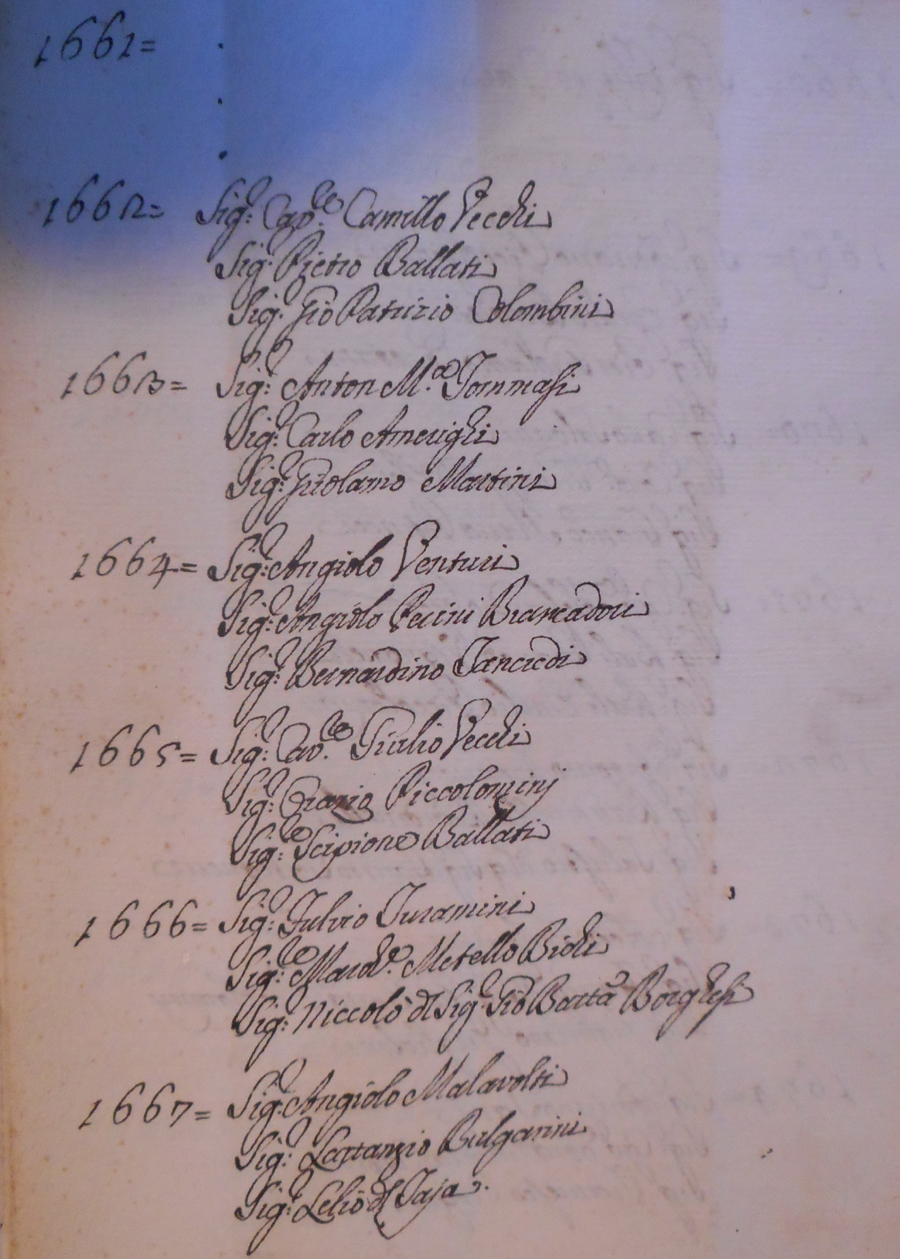 1661=
1662= Sig.r Cav.re Camillo Vecchi
Sig.r Pietro Ballati
Sig.r Gio Patrizio Colombini
1663= Sig.r Anton M.a Tommasi
Sig.r Carlo Amerighi
Sig.r Girolamo Martini
1664= Sig.r Angiolo Venturi
Sig.r Angiolo Pecini Brancadori
Sig.r Bernardino Tancredi
1665= Sig.r Cav.re Giulio Vecchi
Sig.r Orazio Piccolominj
Sig.r Scipione Ballati
1666= Sig.r Fulvio Turamini
Sig.r March.e Metello Bichi
Sig.r Niccolò dl Sig.r Gio Batta Borghesi
1667= Sig.r Angiolo Malavolti
Sig.r Lattanzio Bulgarini
Sig.r Lelio dl Taja